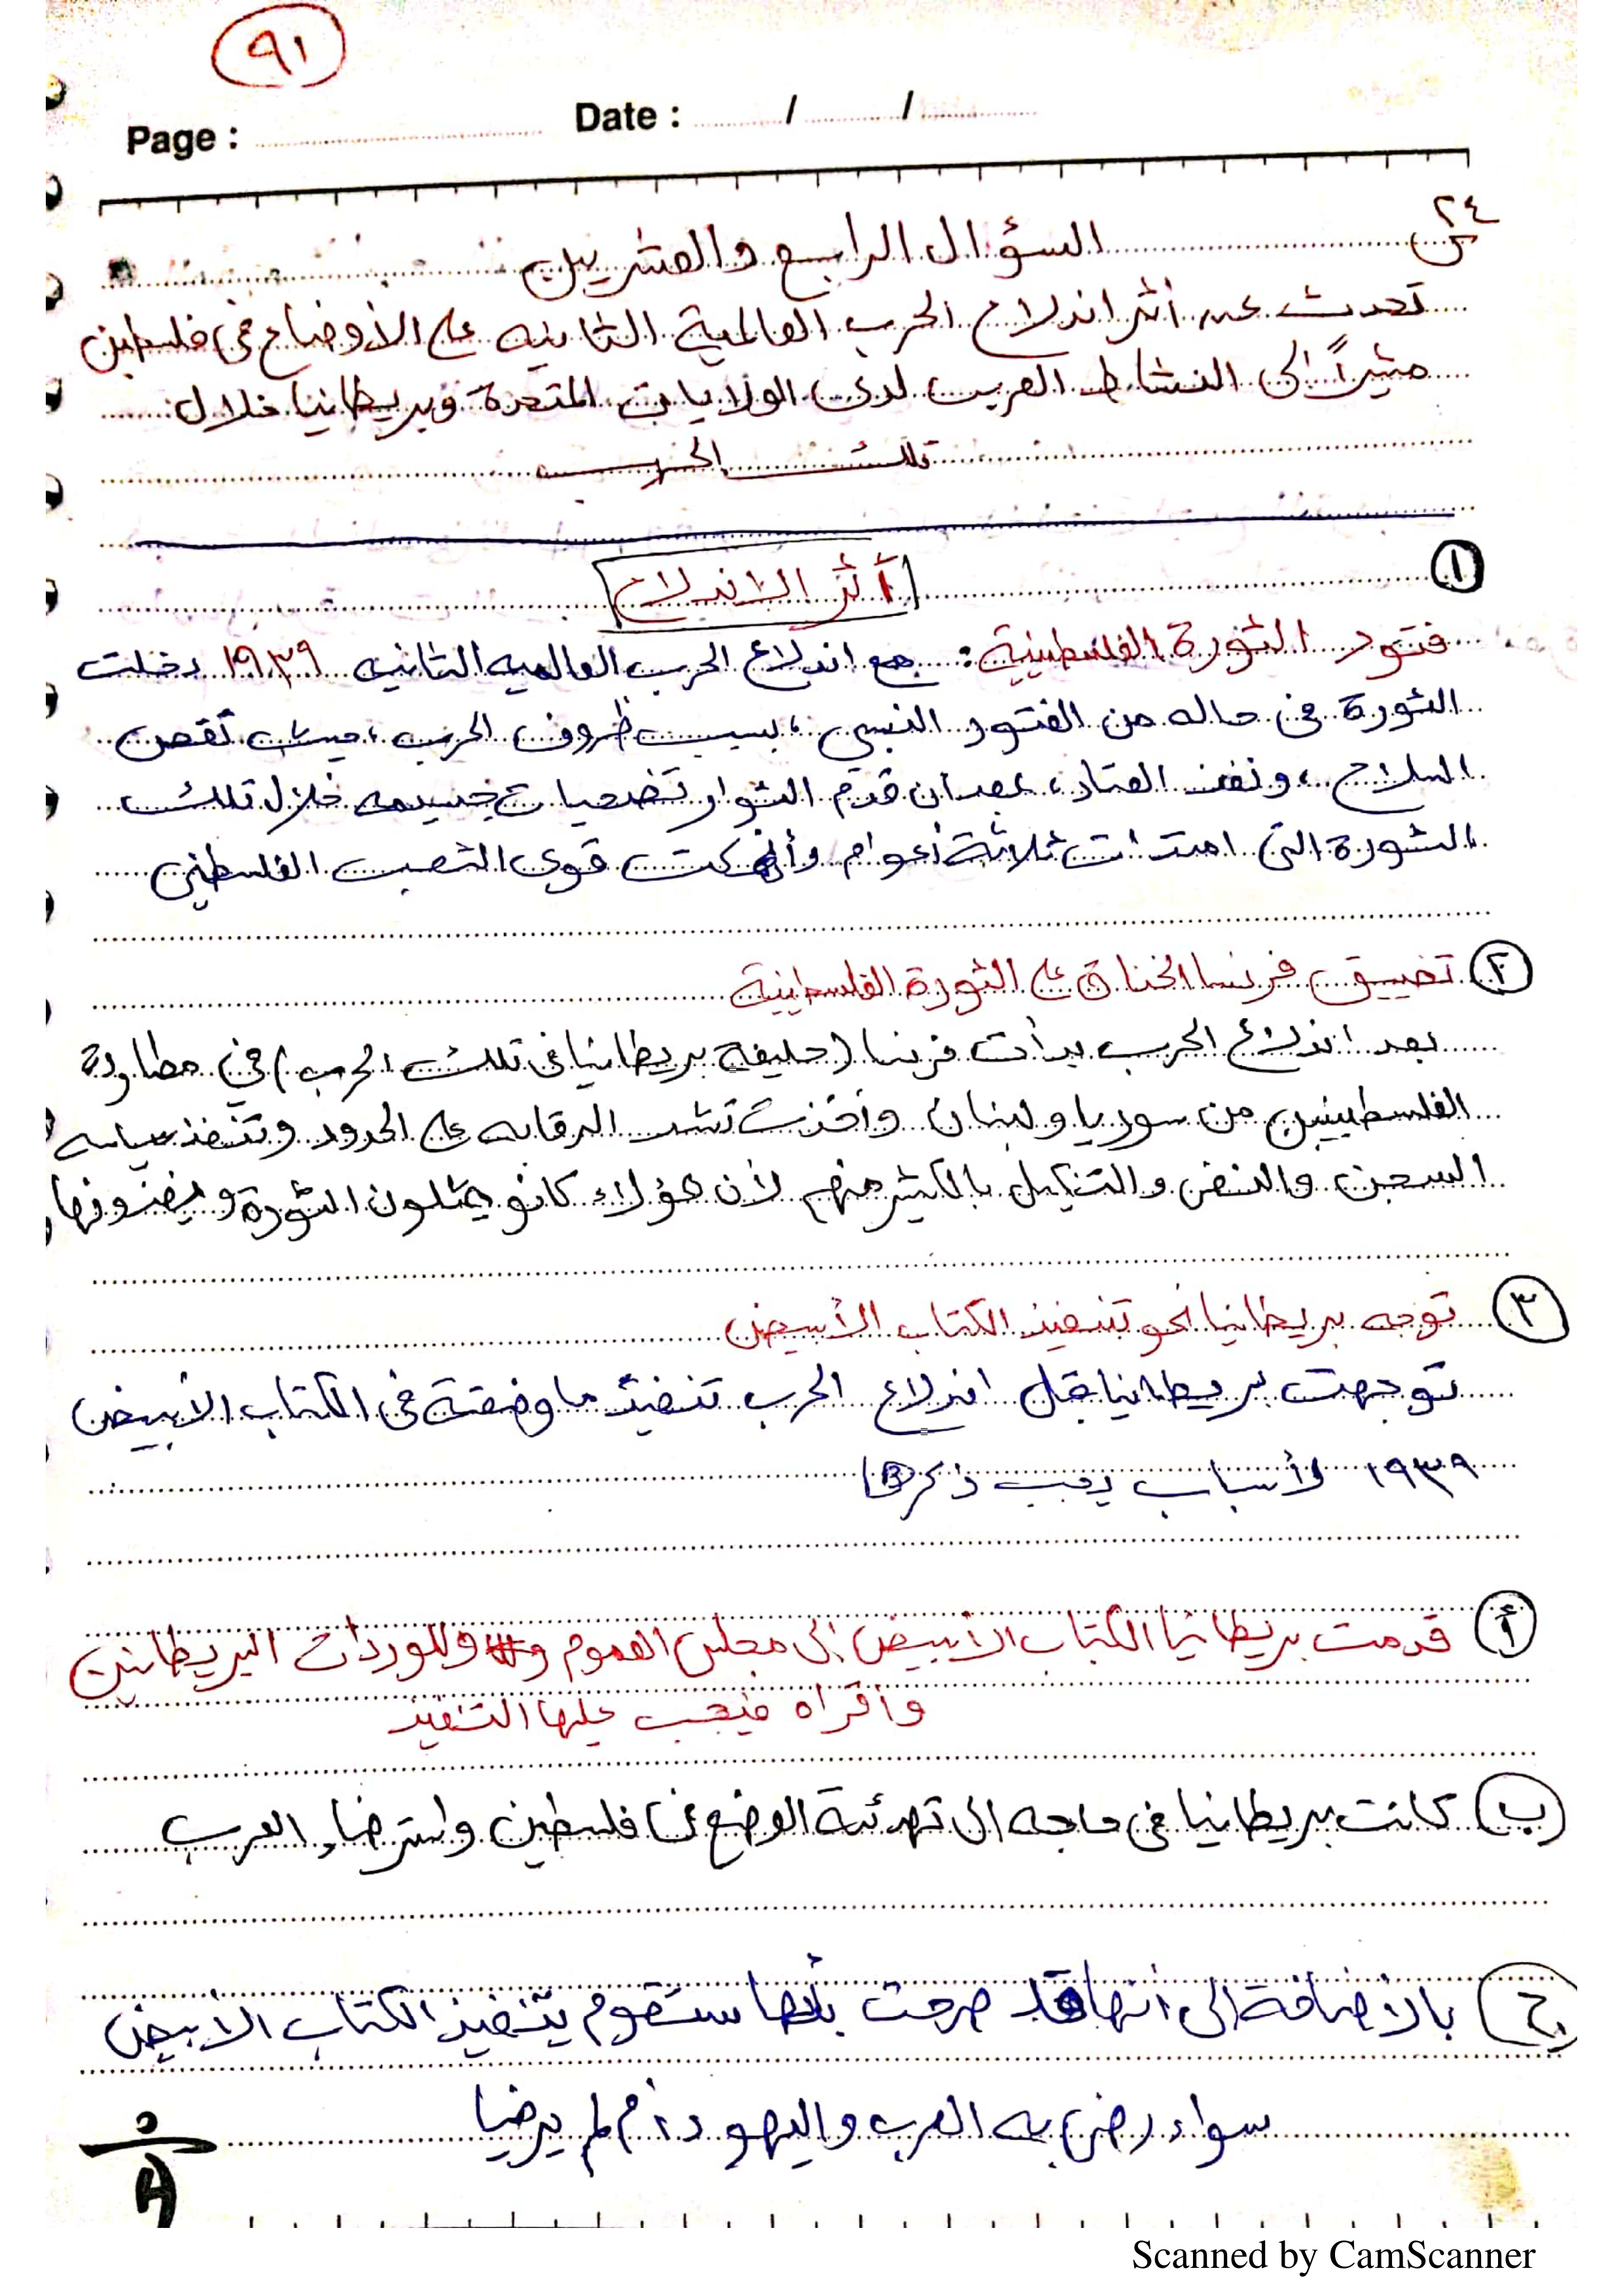 ٩١
Page : Date : / /
س٢٤ السؤال الرابع والعشرين
تحدث عن أثر اندلاع الحرب العالمية الثانيه على الأوضاع في فلسطين
مشيراً إلى النشاط العربي لدى الولايات المتحدة وبريطانيا خلال
تلك الحرب
١ أثر الاندلاع
فتور الثورة الفلسطينية: مع اندلاع الحرب العالميه الثانيه ١٩٣٩ دخلت
الثورة في حاله من الفتور النسبي، بسبب ظروف الحرب، نقص
السلاح، ونفذ العتاد، بعد ان قدم الثوار تضحيات جسيمه خلال تلك
الثورة التي امتدت ثلاثة أعوام وأنهكت قوى الشعب الفلسطيني
٢ تضييق فرنسا الخناق على الثورة الفلسطينية
بعد اندلاع الحرب بدأت فرنسا (حليفة بريطانيا في تلك الحرب) في مطاردة
الفلسطينين من سوريا ولبنان وأخذت تشدد الرقابه على الحدود وتنفذ سياسه
السجن والنفي والتنكيل بالكثير منهم لأن هؤلاء كانو يمثلون الثورة ويغذونها
٣ توجه بريطانيا نحو تنفيذ الكتاب الأبيض
توجهت بريطانيا قبل اندلاع الحرب تنفيذ ما وضعته في الكتاب الأبيض
١٩٣٩ لأسباب يجب ذكرها
أ قدمت بريطانيا الكتاب الأبيض إلى مجلس العموم و واللوردات البريطانين
وأقراه فيجب عليها التنفيذ
ب كانت بريطانيا في حاجه الى تهدئة الوضع في فلسطين واسترضاء العرب
ج بالاضافة إلى أنها قد صرحت بأنها ستقوم بتنفيذ الكتاب الأبيض
سواء رضى به العرب واليهود أم لم يرضيا
Scanned by CamScanner